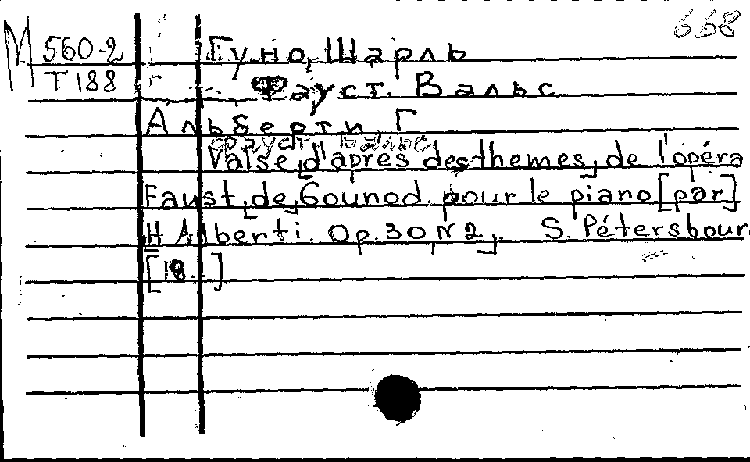 668
М 560-2
Т 188
Гуно, Шарль
Фауст. Вальс
Альберти Г
Фауст Вальс
Valse, d'après des themes, de l'opéra
Faust, de, Gounod. pour le piano [par]
H Alberti. Op. 30, N 2, S. Pétersbour
[18..]